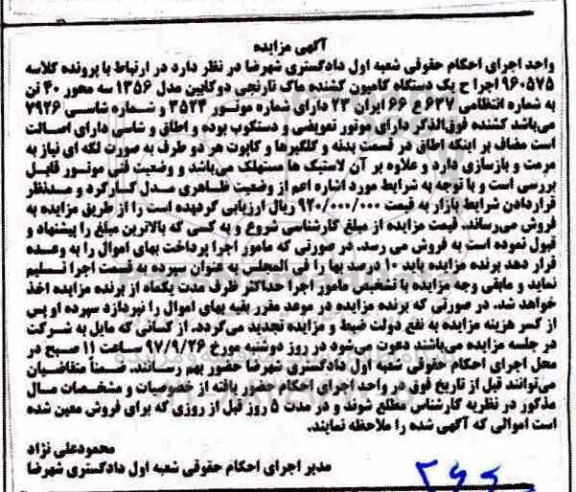 آگهی مزایده
واحد اجرای احکام حقوقی شعبه اول دادگستری شهرضا در نظر دارد در ارتباط با پرونده کلاسه
۹۶۰۵۷۵ اجرا ح یک دستگاه کامیون کشنده ماک نارنجی دوکابین مدل ۱۳۵۶ سه محور ۴۰ تن
به شماره انتظامی ۶۳۷ ع ۶۶ ایران ۲۳ دارای شماره موتور ۳۵۲۴ و شماره شاسی ۷۹۲۶
می‌باشد کشنده فوق‌الذکر دارای موتور تعویضی و دستکوب بوده و اطاق و شاسی دارای اصالت
است مضاف بر اینکه اطاق در قسمت بدنه و گلگیرها و کاپوت هر دو طرف به صورت لکه ای نیاز به
مرمت و بازسازی دارد و علاوه بر آن لاستیک ها مستهلک می‌باشد و وضعیت فنی موتور قابل
بررسی است و با توجه به شرایط مورد اشاره اعم از وضعیت ظاهری مدل کارکرد و مدنظر
قراردادن شرایط بازار به قیمت ۹۲۰/۰۰۰/۰۰۰ ریال ارزیابی گردیده است را از طریق مزایده به
فروش می‌رساند. قیمت مزایده از مبلغ کارشناسی شروع و به کسی که بالاترین مبلغ را پیشنهاد و
قبول نموده است به فروش می رسد. در صورتی که مامور اجرا پرداخت بهای اموال را به وعده
قرار دهد برنده مزایده باید ۱۰ درصد بها را فی المجلس به عنوان سپرده به قسمت اجرا تسلیم
نماید و مابقی وجه مزایده با تشخیص مامور اجرا حداکثر ظرف مدت یکماه از برنده مزایده اخذ
خواهد شد. در صورتی که برنده مزایده در موعد مقرر بقیه بهای اموال را نپردازد سپرده او پس
از کسر هزینه مزایده به نفع دولت ضبط و مزایده تجدید می‌گردد. از کسانی که مایل به شرکت
در جلسه مزایده می‌باشند دعوت می‌شود در روز دوشنبه مورخ ۹۷/۹/۲۶ ساعت ۱۱ صبح در
محل اجرای احکام حقوقی شعبه اول دادگستری شهرضا حضور بهم رسانند. ضمناً متقاضیان
می‌توانند قبل از تاریخ فوق در واحد اجرای احکام حضور یافته از خصوصیات و مشخصات مال
مذکور در نظریه کارشناس مطلع شوند و در مدت ۵ روز قبل از روزی که برای فروش معین شده
است اموالی که آگهی شده را ملاحظه نمایند.
محمودعلی نژاد
مدیر اجرای احکام حقوقی شعبه اول دادگستری شهرضا